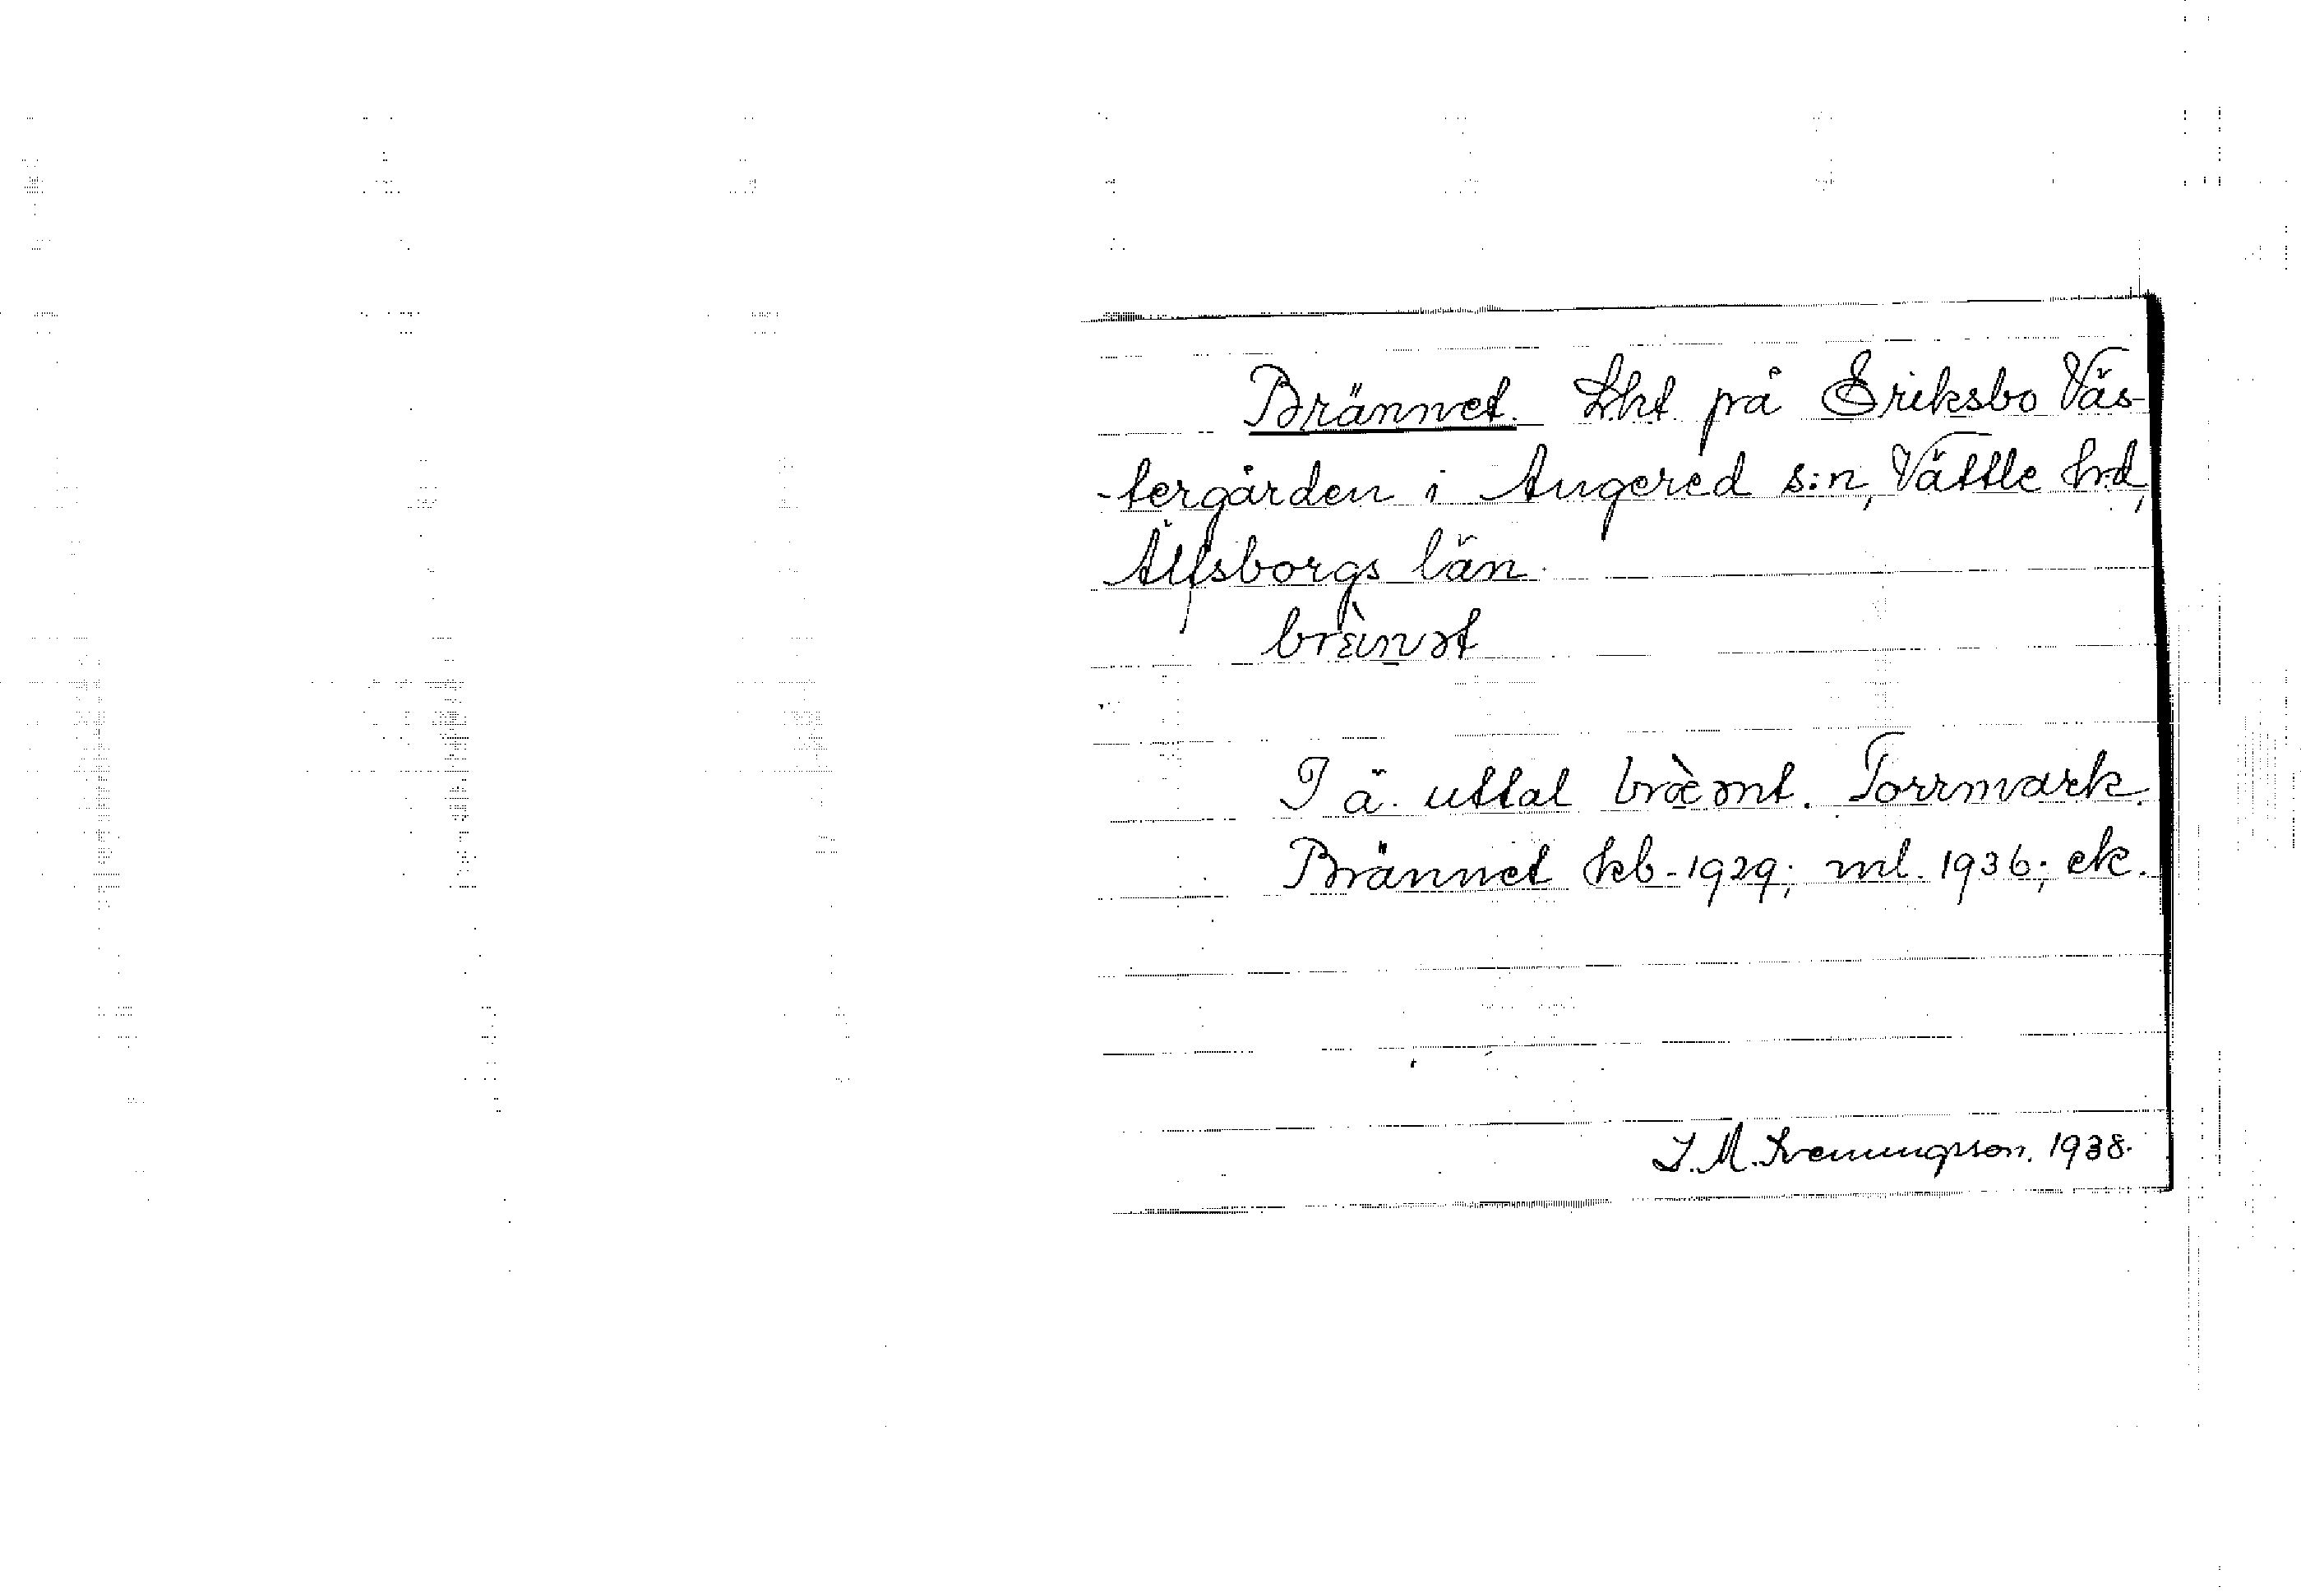 Brännet. Lht på Eriksbo Väs-
-tergården i Angered s:n, Vättle hrd,
Älfsborgs län.
brä̀nət
I ä. uttal bræ̀ənt. Torrmark.
Brännet kb-1929; ml. 1936; ek.
J. M. Svenungsson. 1938.